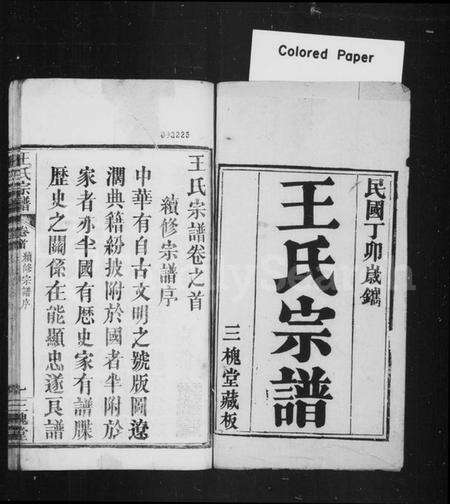 Colored Paper
民國丁卯歲鐫
王氏宗譜
三槐堂藏板
092225
王氏宗譜卷之首
續修宗譜序
中華有自古文明之號版圖遼
濶典籍紛披附於國者半附於
家者亦半國有歷史家有譜牒
歷史之關係在能顯忠遂良譜
王氏宗譜
卷首
續修宗譜序
一
三槐堂